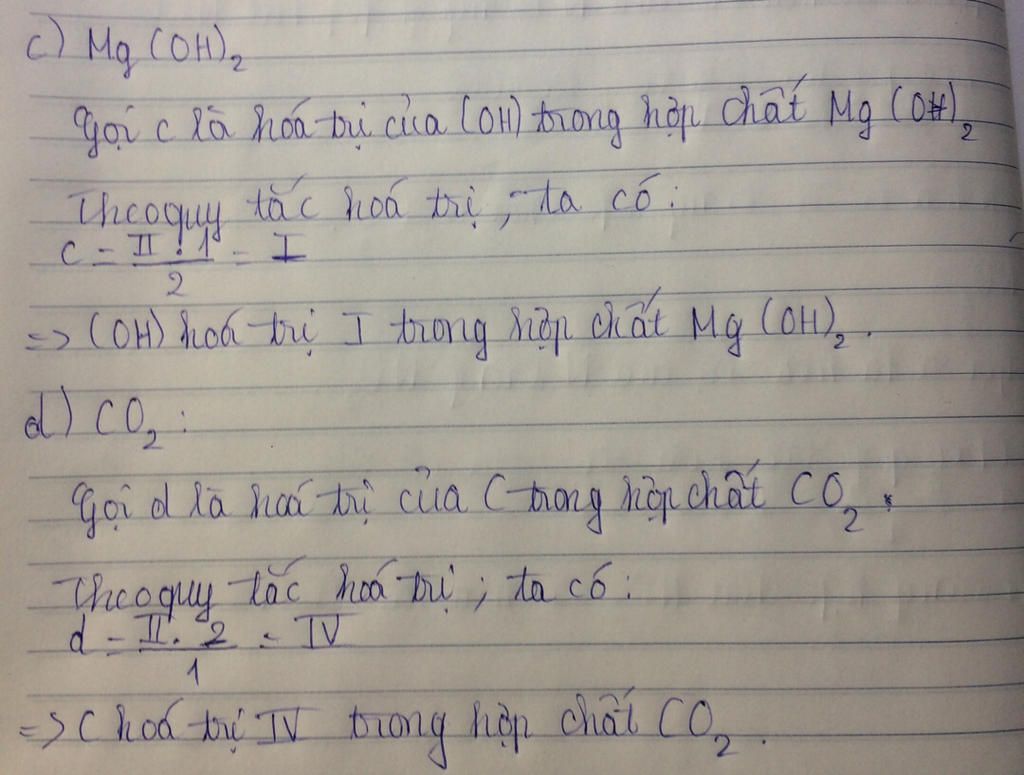 c) Mg(OH)₂
Gọi c là hoá trị của (OH) trong hợp chất Mg(OH)₂
Theo quy tắc hoá trị, ta có:
c = II . 1 / 2 = I
=> (OH) hoá trị I trong hợp chất Mg(OH)₂.
d) CO₂:
Gọi d là hoá trị của C trong hợp chất CO₂.
Theo quy tắc hoá trị; ta có:
d = II . 2 / 1 = IV
=> C hoá trị IV trong hợp chất CO₂.